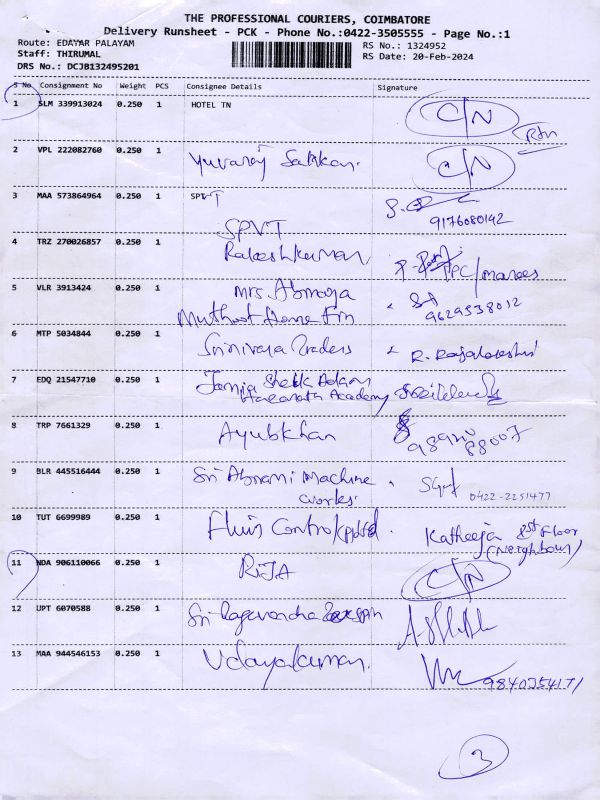 THE PROFESSIONAL COURIERS, COIMBATORE
Delivery Runsheet - PCK - Phone No.:0422-3505555 - Page No.:1
Route: EDAYAR PALAYAM
Staff: THIRUMAL
DRS No.: DCJB132495201
RS No.: 1324952
RS Date: 20-Feb-2024
S No Consignment No Weight PCS Consignee Details Signature
1 SLM 339913024 0.250 1 HOTEL TN C/N
Rtn
2 VPL 222082760 0.250 1 Yuvaraj C/N
3 MAA 573864964 0.250 1 SPVT
SPVT 9176080142
4 TRZ 270026857 0.250 1 Rakeshkumar
5 VLR 3913424 0.250 1 Mrs.
Muthoot Home Fin 9629538012
6 MTP 5034844 0.250 1 Srinivasa Traders R. Rajalakshmi
7 EDQ 21547710 0.250 1 Jamia Sheik
Academy
8 TRP 7661329 0.250 1 Ayubkhan 98920 88007
9 BLR 445516444 0.250 1 Sri Abirami Machine
Works. 0422-2251477
10 TUT 6699989 0.250 1 Control Katheeja 1st Floor
(Neighbour)
11 NDA 906110066 0.250 1 RIJA C/N
12 UPT 6070588 0.250 1 Sri
13 MAA 944546153 0.250 1 Udayakumar. 9840354171
3